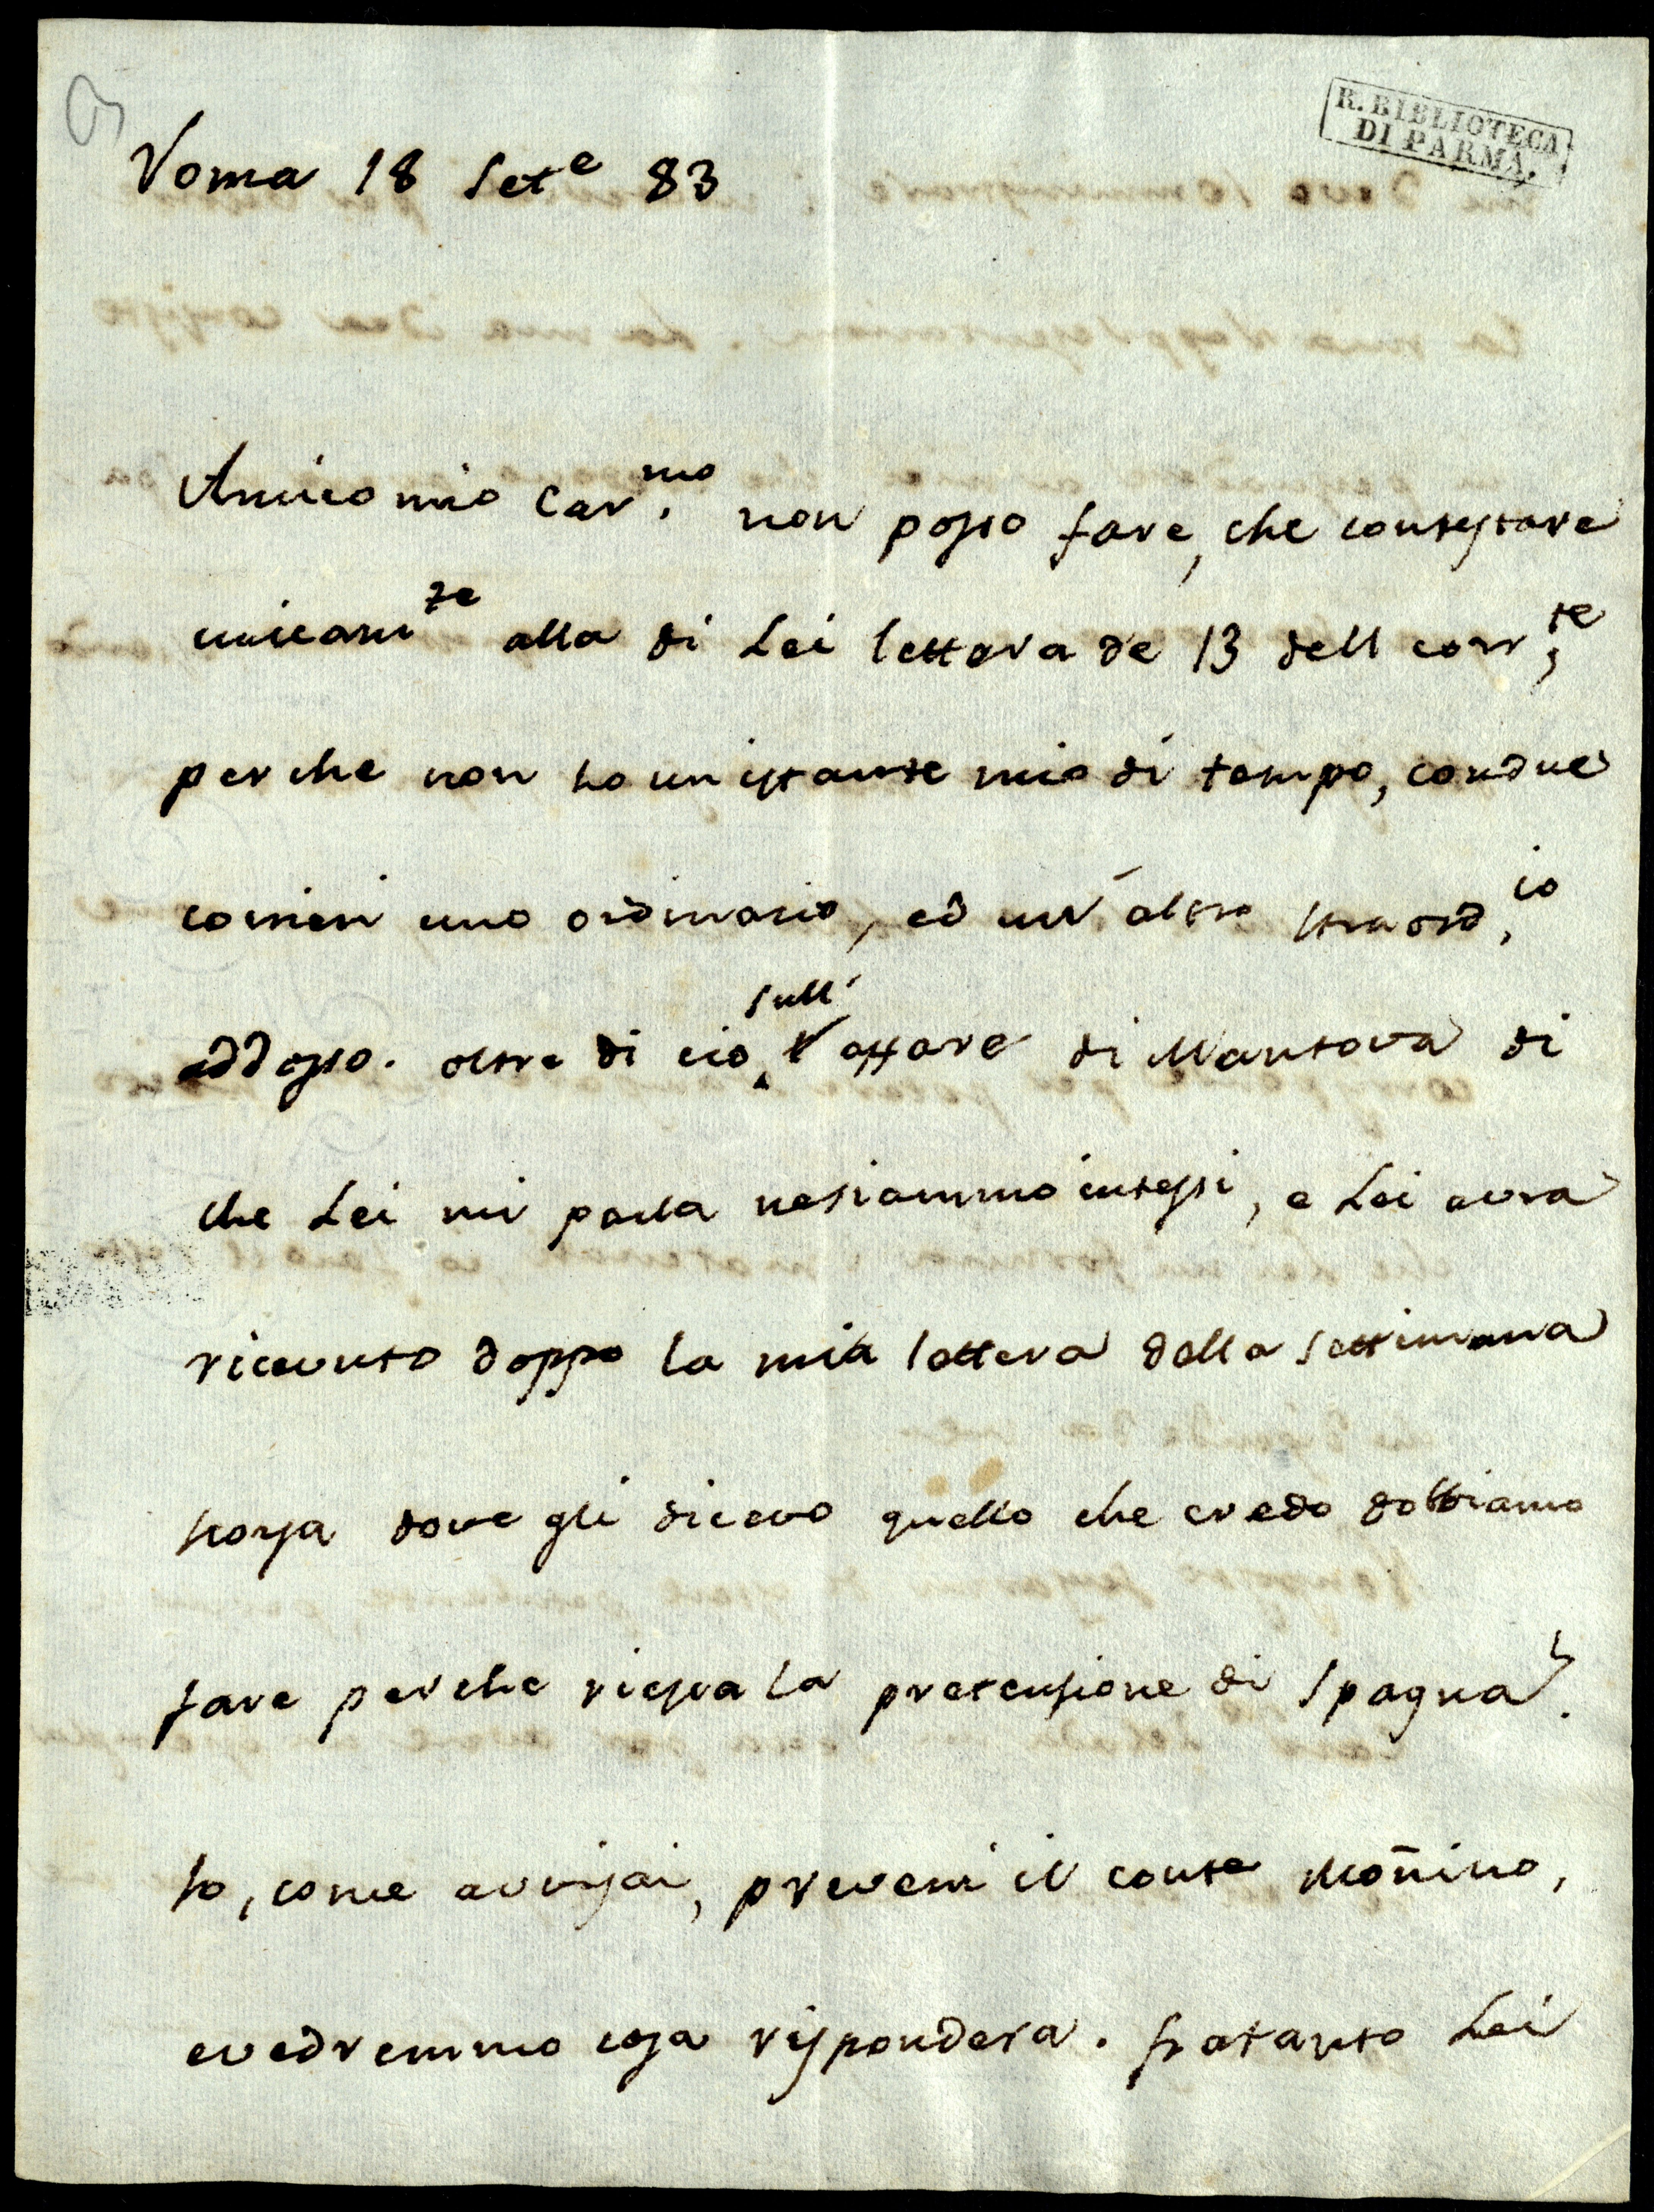 R. BIBLIOTECA
DI PARMA.
Roma 18 Set.e 83
Amico mio Car.mo non posso fare, che contestare
unicam.te alla di Lei lettera de 13 dell corr.te,
perche non ho un istante mio di tempo, con due
corrieri uno ordinario, ed un' altro straord.io
addosso. oltre di cio sull' affare di Mantova di
che Lei mi parla ne siammo intesi, e Lei avra
ricevuto doppo la mia lettera della settimana
scorsa dove gli dicevo quello che credo dobbiamo
fare perche riesca la pretensione di Spagna.
Io, come avvisai, preveni il conte Moñino,
e vedremmo cosa rispondera. fratanto Lei